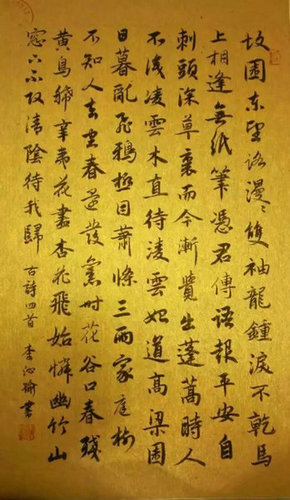 故園东望路漫漫雙袖龍鍾淚不乾馬
上相逢無紙筆憑君傳語報平安自
刺頭深草裏而今漸覺出蓬蒿時人
不识凌雲木直待凌雲始道高梁園
日暮亂飛鴉極目蕭條三兩家庭樹
不知人去尽春還發舊时花谷口春殘
黄鳥稀辛夷花盡杏花飛始憐幽竹山
窓下不改清陰待我歸 古詩四首 李沁瑜書